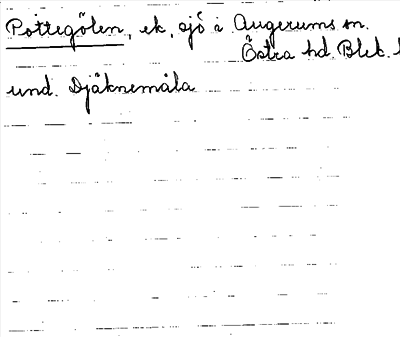 Pottegölen, ek, sjö i Augerums sn.
Östra hd Blek. l
und. Djäknemåla